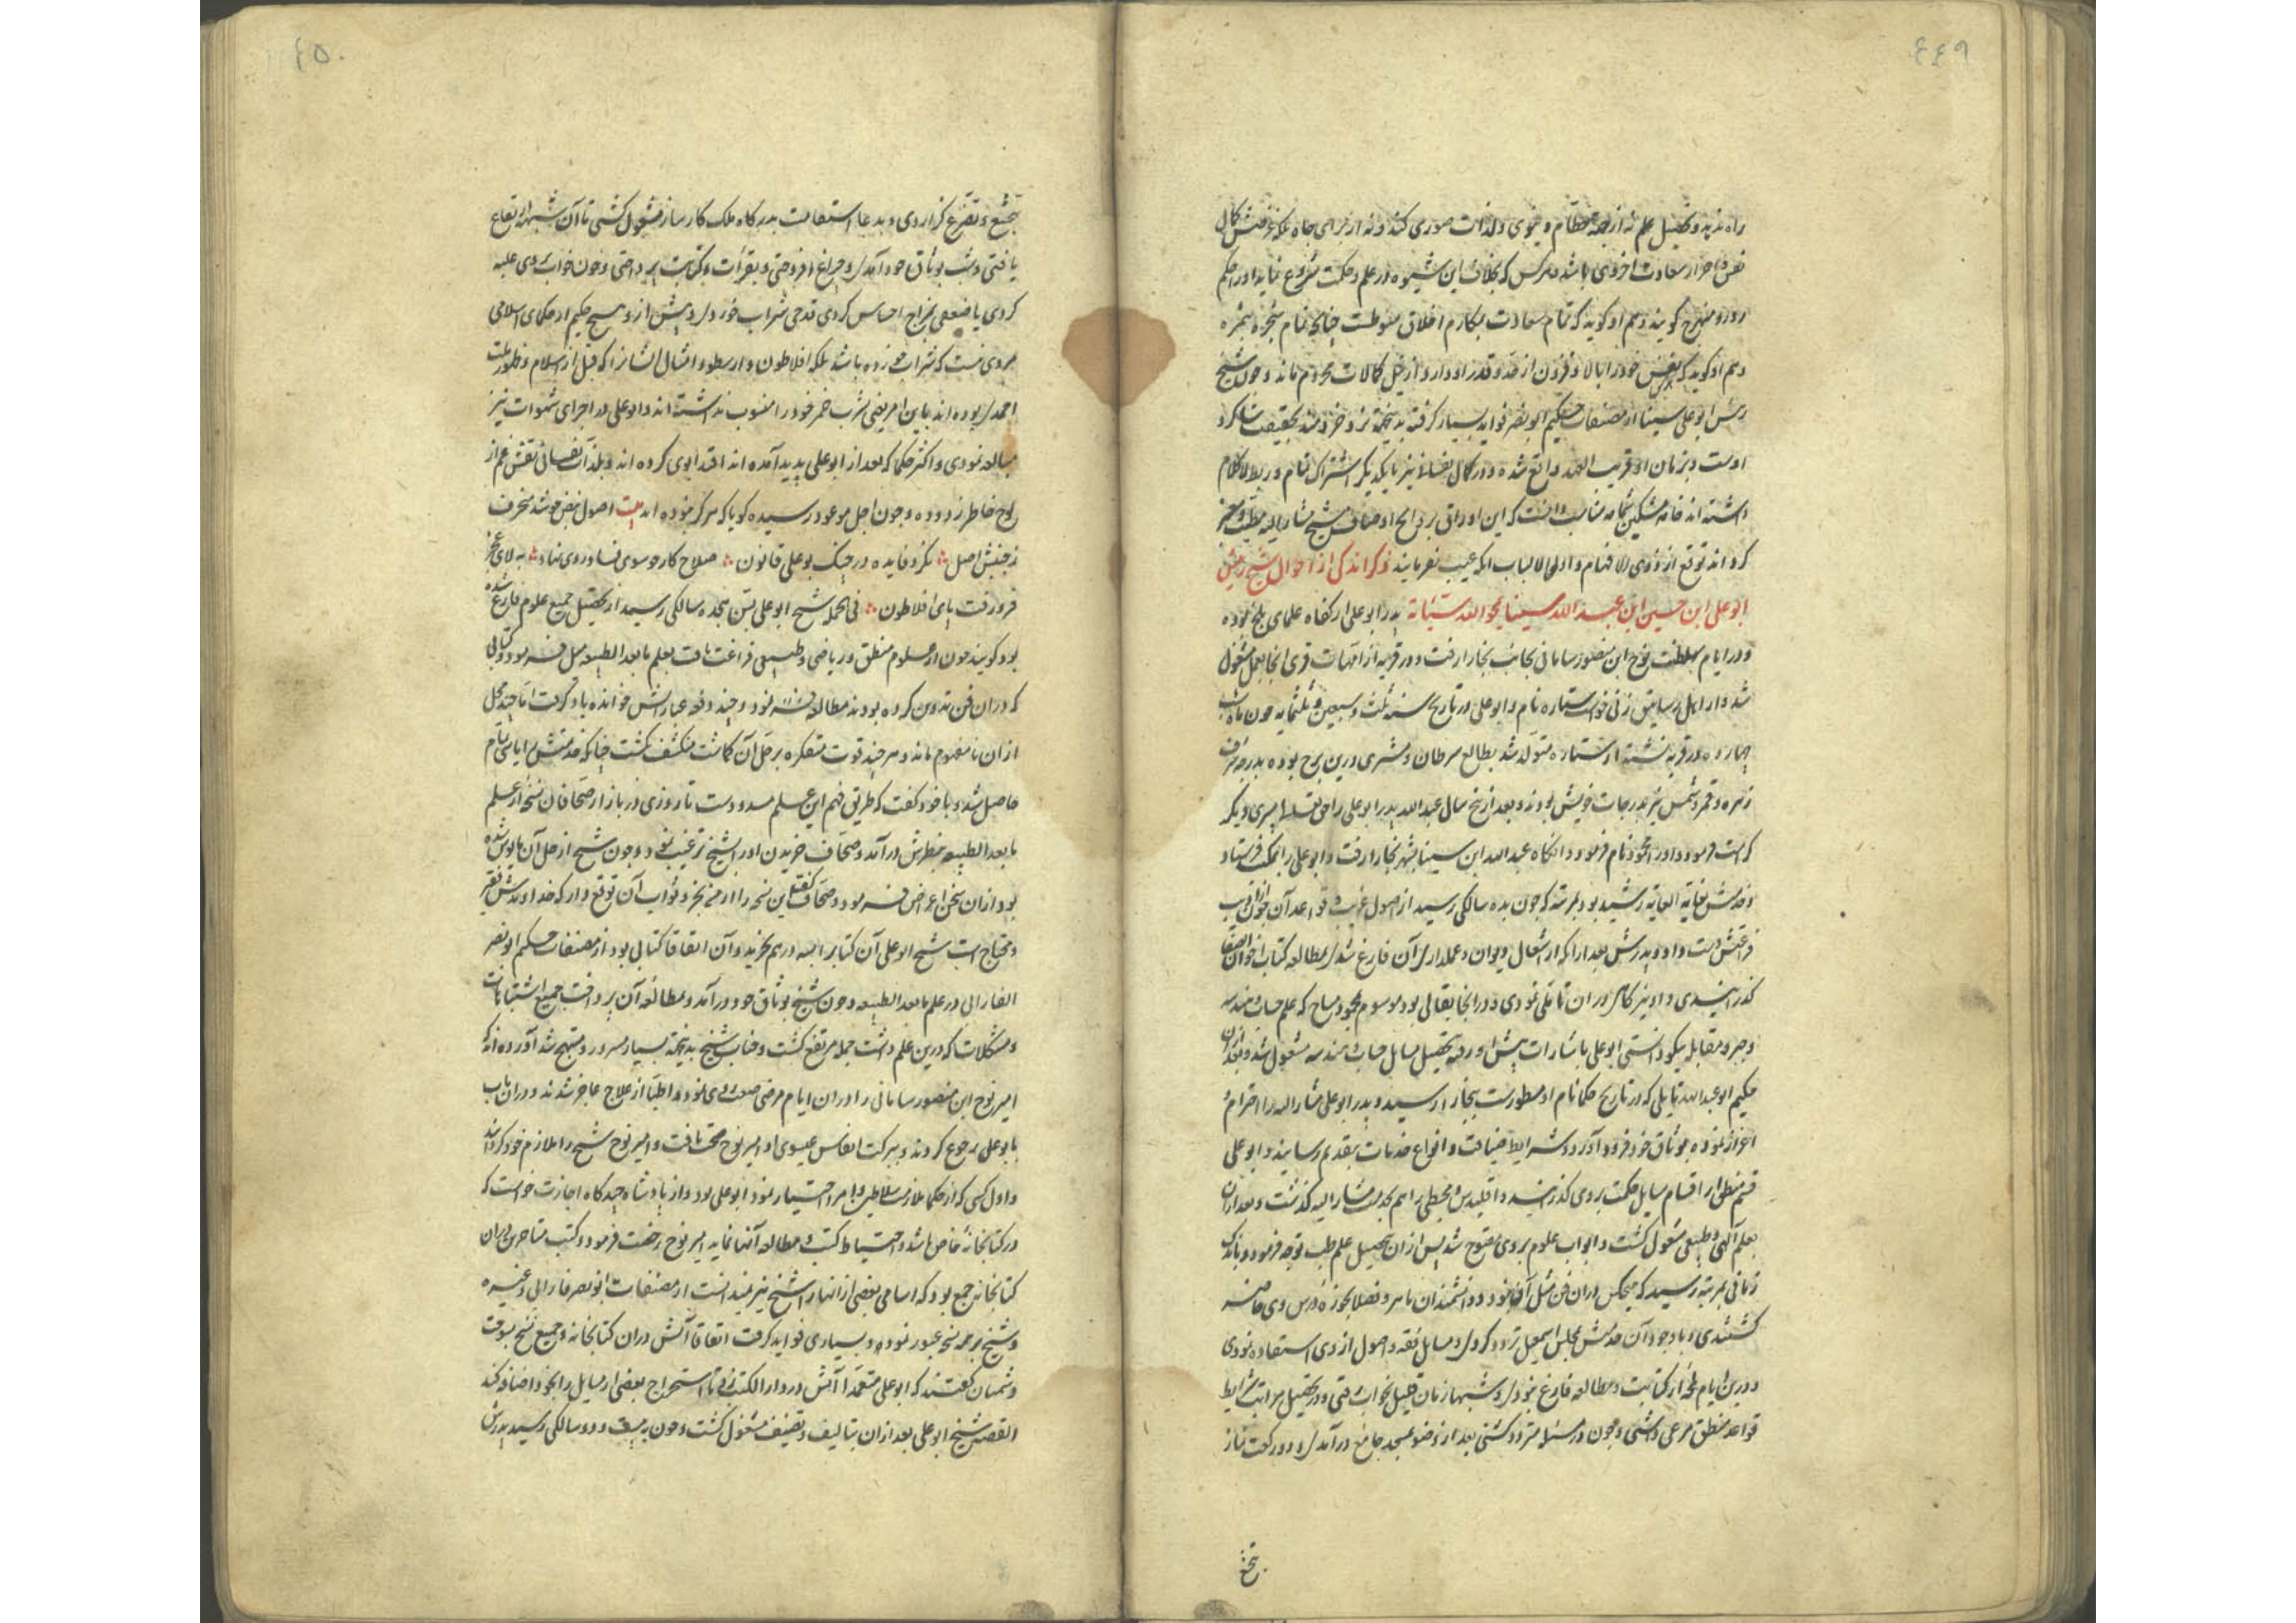 ٤٤٩
راه ندهد و تحصیل علم نه از جهة حطام دنیوی و لذات صوری کند و نه از برای جاه بلکه غرضش کمال
نفس و احراز سعادت اخروی باشد و هر کس که بخلاف این شیوه در علم و حکمت شروع نماید او را حکیم
زور و بهرج کویند و هم او کوید که تمام سعادت بمکارم اخلاق منوطست چنانچه تمام شجره بثمره
و هم او کوید که هر که نفس خود را بالا و فزون از حد و قدر او دارد از نیل کمالات محروم ماند و چون شیخ
رئیس ابوعلی سینا از مصنفات حکیم ابو نصر فواید بسیار کرفته بدینجهة نزد خردمند بحقیقت شاکرد
اوست و بزمان او قریب العهد واقع شده و در کمال نفسانی نیز با یکدیکر اشتراک تمام در ربط کلام
داشته اند خامه مشکین شمامه مناسب دانست که این اوراق بروایح اوصاف شیخ مشار الیه مطیب و معطر
کرداند توقع از ذوی الافهام و اولی الالباب آنکه عیب نفرمایند ذکر اندکی از احوال شیخ رئیس
ابوعلی ابن حسین ابن عبد الله سینا محو الله سیئاته پدر ابوعلی از کفاه علمای بلخ بوده
و در ایام سلطنت نوح ابن منصور سامانی بجانب بخارا رفت و در قریه از امهات قری آنجا بعمل مشغول
شد و از اهل رساتیق زنی خواست ستاره نام و ابوعلی در تاریخ سنه ثلث و سبعین و ثلثمایه چون ماه شب
چهارده در قریه نشنه از ستاره متولد شد بطالع سرطان و مشتری درین برج بوده بدرجه شرف
زهره و قمر و شمس نیز بدرجات خویش بودند و بعد از پنج سال عبد الله پدر ابوعلی را حق تعالی پسری دیکر
کرامت فرمود و او را محمود نام فرمود و آنکاه عبد الله ابن سینا بشهر بخارا رفت و ابوعلی را بمکتب فرستاد
و خدمتش بغایة الغایة رشید بود بمرتبه که چون بده سالکی رسید از اصول عربیت و قواعد آن
فراغتش دست داد و پدرش بعد از آنکه از اشغال دیوان و عملداری آن فارغ شدی بمطالعه کتاب اخوان الصفا
کذرانیدی و او نیز کاهی در آن تاملی نمودی و در آنجا بقالی بود موسوم بمحمود مساح که علم حساب و هندسه
و جبر و مقابله نیکو دانستی ابوعلی باشارت پدر پیش او رفته بتحصیل مسایل حساب و هندسه مشغول شد و بعد از آن
حکیم ابو عبد الله ناتلی که در تاریخ حکما نام او مسطورست ببخارا رسید و پدر ابوعلی مشار الیه را احترام و
اعزاز نموده بوثاق خود فرود آورد و شرایط ضیافت و انواع خدمات بتقدیم رسانید و ابوعلی
قسم منطق از اقسام مسایل حکمت بر وی کذرانید و اقلیدس و مجسطی را هم بخدمت مشار الیه کذشت و بعد از آن
بعلم آلهی و طبیعی مشغول کشت و ابواب علوم بر وی مفتوح شد پس از آن بتحصیل علم طب توجه فرمود و باندک
زمانی بمرتبه رسید که هیچکس در آن فن مثل او نبود و دانشمندان ماهر و فضلا بحوزه درس وی حاضر
کشتندی و با وجود آن خدمتش بمجلس اسمعیل تردد کردی و مسایل فقه و اصول از وی استفاده نمودی
و درین ایام لحظه از کتابت و مطالعه فارغ نبودی و شبها زمان قلیل بخواب رفتی و در تحصیل مراتب شرایط
قواعد منطق مرعی داشتی و چون در مسئله متردد کشتی بعد از وضو بمسجد جامع درآمدی و دو رکعت نماز
بتخشع
٤٥٠
بتخشع و تضرع کزاردی و بدعا و استغاثت بدرکاه ملک کارساز مشغول کشتی تا آن شبهه ارتفاع
یافتی و شب بوثاق خود آمدی و چراغ افروختی و بقرائت و کتابت پرداختی و چون خواب بر وی غلبه
کردی یا ضعفی بمزاج احساس کردی قدحی شراب خوردی و پیش از و هیچ حکیم از حکمای اسلامی
مروی نیست که شراب خورده باشد بلکه افلاطون و ارسطو و امثال ایشانرا که قبل از اسلام و ظهور ملت
احمدی بوده اند باین امر یعنی شرب خمر خود را منسوب نداشته اند و ابوعلی در اجرای شهوات نیز
مبالغه نمودی و اکثر حکما که بعد از ابوعلی پدید آمده اند اقتدا بوی کرده اند و بلذات نفسانی نقش غم از
لوح خاطر زدوده و چون اجل موعود رسیده کویا که هرکز نبوده اند بیت اصول نغض خوشد منحرف
ز جنبش اصل نکرد فایده در جنک بوعلی قانون صلاح کار چو سوی فساد روی نهاد به لای عجز
فرو رفت پای افلاطون فی الجمله شیخ ابوعلی بسن هجده سالکی رسید از تحصیل جمیع علوم فارغ شده
بود کویند چون از علوم منطق و ریاضی و طبیعی فراغت یافت بعلم ما بعد الطبیعه میل فرمود و کتابی
که در آن فن تدوین کرده بودند مطالعه نمود و چند دفعه عبارتش خوانده یاد کرفت اما چند محل
از آن نامفهوم ماند و هر چند قوت متفکره بر حل آن کماشت منکشف نکشت چنانکه خدمتش را یاس تمام
حاصل شد و با خود کفت که طریق فهم این علم مسدودست تا روزی در بازار صحافان نسخه از علم
ما بعد الطبیعه بنظرش درآمد و صحاف خریدن او را بشیخ ترغیب نمود و چون شیخ از حل آن مایوس شده
بود از آن سخن اعراض فرمود و صحاف کفت این نسخه را از من بخر و ثواب آن توقع دار که خداوندش فقیر
و محتاج است شیخ ابوعلی آن کتاب را بسه درهم بخرید و آن اتفاقا کتابی بود از مصنفات حکیم ابو نصر
الفارابی در علم ما بعد الطبیعه و چون شیخ بوثاق خود درآمد و بمطالعه آن پرداخت جمیع اشتباهات
و مشکلات که درین علم داشت جمله مرتفع کشت و جناب شیخ بدینجهة بسیار مسرور و مبتهج شد آورده اند که
امیر نوح ابن منصور سامانی را در آن ایام مرضی صعب روی نموده اطبا از علاج عاجز شدند و در آن باب
بابوعلی رجوع کردند و ببرکت انفاس عیسوی او امیر نوح صحت یافت و امیر نوح شیخ را ملازم خود کردانید
و اول کسی که از حکما ملازمت سلاطین و امرا اختیار نمود ابوعلی بود و از پادشاه جمجاه اجازت خواست که
در کتابخانه خاص باشد و احتیاط کتب و مطالعه آنها نماید امیر نوح رخصت فرمود و کتب متاخرین در آن
کتابخانه جمع بود که اسامی بعضی از آنها را شیخ نیز نمیدانست از مصنفات ابو نصر فارابی و غیره
و شیخ بر جمله نسخ عبور نموده و بسیاری فواید کرفت اتفاقا آتش در آن کتابخانه و جمیع نسخ بسوخت
دشمنان کفتند که ابوعلی متعمدا آتش در دار الکتب زد تا استخراج بعضی از مسایل را بخود اضافه کند
القصه شیخ ابوعلی بعد از آن بتالیف و تصنیف مشغول کشت و چون به بیست و دو سالکی رسید پدرش